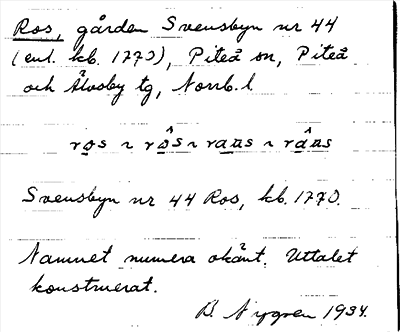 Ros, gården Svensbyn nr 44
(enl. kb. 1770), Piteå sn, Piteå
och Älvsby tg, Norrb. l.
Svensbyn nr 44 Ros, kb. 1770.
Namnet numera okänt. Uttalet
konstruerat.
B. Nygren 1934.